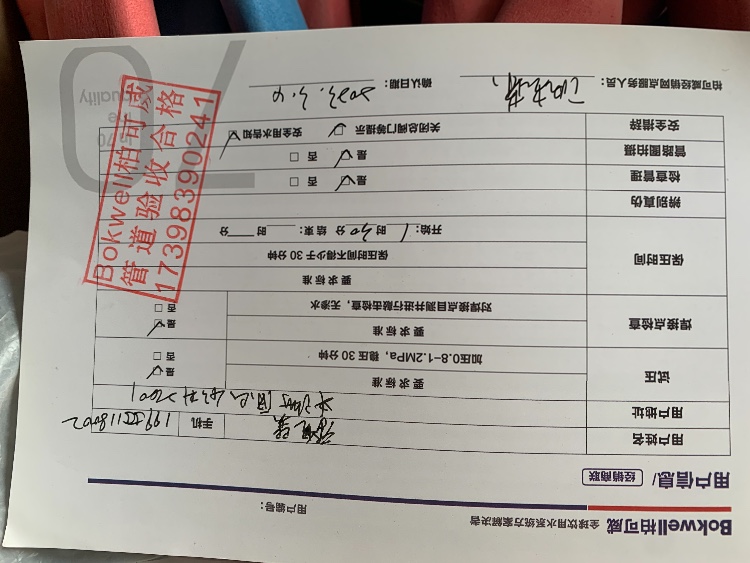 Bokwell柏可威 全球饮用水系统方案解决者
用户编号：
用户信息/ 经销商联
用户姓名
手机
用户地址
试压
要求标准
加压0.8-1.2MPa，稳压30分钟
是
否
焊接点检查
要求标准
对焊接点目测并进行敲击检查，无渗水
是
否
保压时间
要求标准
保压时间不得少于30分钟
开始：1时30分 结束：时 分
辨别真伪
检查管理
是 否
管路图拍摄
是 否
安全措辞
关闭总阀门等提示 安全用水告知
柏可威经销网点服务人员：
确认日期：2023.3.4
Bokwell柏可威
管道验收合格
17398390241
70